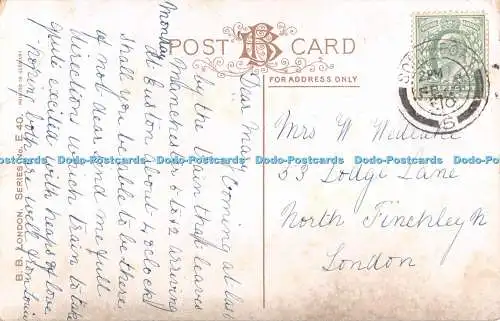 POST CARD
FOR ADDRESS ONLY
Monday
Dear May, Coming at last
by the train that leaves
Manchester 6 to 12 arriving
at Euston about 4 o'clock
shall you be able to be there
if not dear send me full
directions which train to take
quite excited with heaps of love
hoping both are well
Mrs W
53 Lodge Lane
North Finchley
London
B. B. LONDON. SERIES No. E 40.
2 PM
10
Dodo-Postcards Dodo-Postcards Dodo-Postcards Dodo-Postcards